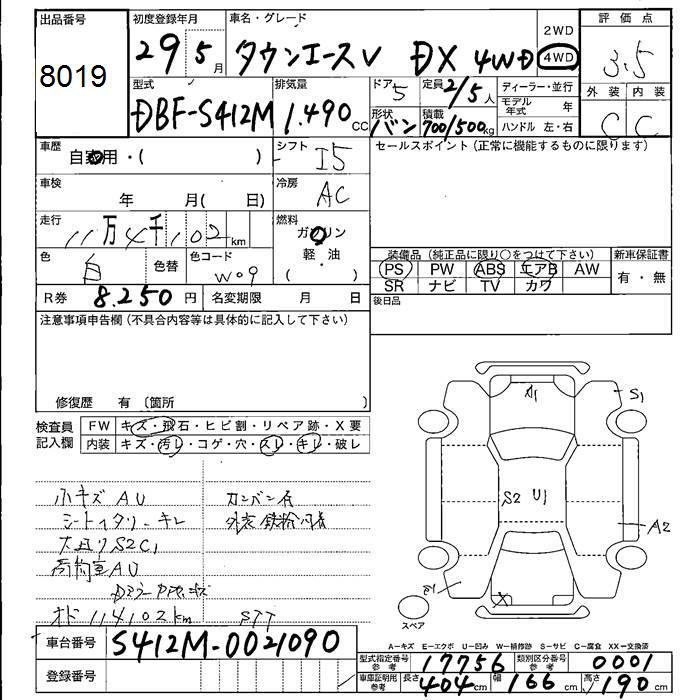 出品番号
8019
初度登録年月
29年5月
車名・グレード
タウンエースV DX 4WD
2WD
4WD
評価点
3.5
外装 内装
C C
型式
DBF-S412M
排気量
1.490cc
ドア
5
定員 2/5人
形状
バン
積載
700/500kg
ディーラー・並行
モデル年式 年
ハンドル 左・右
車歴
自家用・( )
シフト
I5
セールスポイント(正常に機能するものに限ります)
車検
年 月( 日)
冷房
AC
走行
11万4千102km
燃料
ガソリン
軽・油
( )
色
白
色替
色コード
W09
装備品(純正品に限り○をつけて下さい)
PS PW ABS エアB AW
SR ナビ TV カワ
新車保証書
有・無
R券 8.250円
名変期限 月 日
後日品
注意事項申告欄(不具合内容等は具体的に記入して下さい)
修復歴 有 〔箇所 〕
検査員記入欄
FW キズ・飛石・ヒビ割・リペア跡・X要
内装 キズ・汚レ・コゲ・穴・スレ・キレ・破レ
小キズAU
カンバン
シート キレ
外装 鉄粉
S2C1
荷物室AU
オド 114102km
A1
S1
S2 U1
A2
X
スペア
車台番号 S412M-0021090
登録番号
A=キズ E=エクボ U=凹み W=補修跡 S=サビ C=腐食 XX=交換済
型式指定番号参考 17756
類別区分番号参考 0001
車庫証明用参考 長さ 404cm 幅 166cm 高さ 190cm